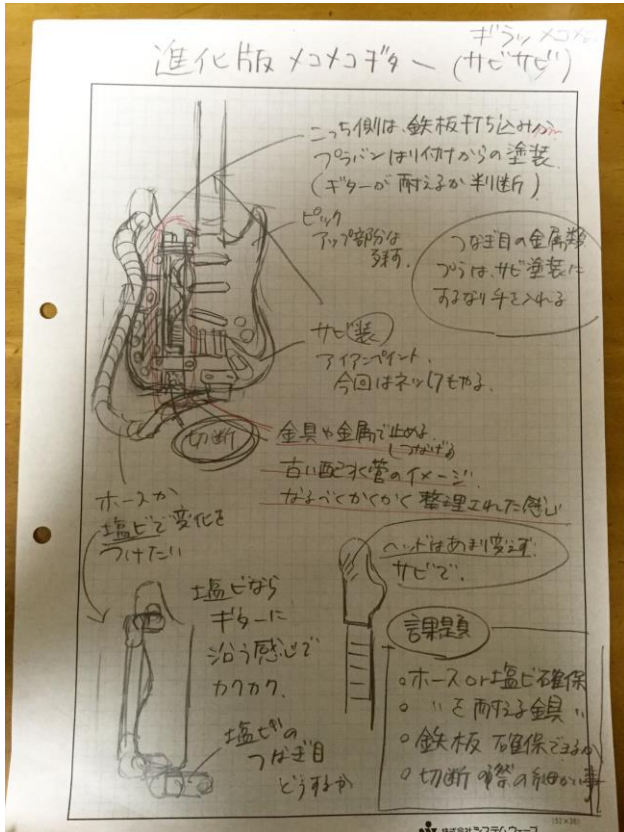 ギラッメコメコ
進化版 メコメコギター (サビサビ)
こっち側は、鉄板打ち込み
プラバンはり付けからの塗装
(ギターが耐えるか判断)
ピック
アップ部分は
残す.
つなぎ目の金属類
プラは、サビ塗装に
するなり手を入れる
サビ装
アイアンペイント.
今回はネックもやる.
切断
金具や金属で止める.
つなげる
古い配水管のイメージ.
なるべくかくかく整理された感じ
ホースか
塩ビで変化を
つけたい
ヘッドはあまり変えず.
サビで.
塩ビなら
ギターに
沿う感じで
カクカク.
塩ビの
つなぎ目
どうするか
課題
○ホースor塩ビ確保
○ 〃を耐える金具 〃
○鉄板 確保できるか
○切断の際の細かい事
株式会社システムウェーブ